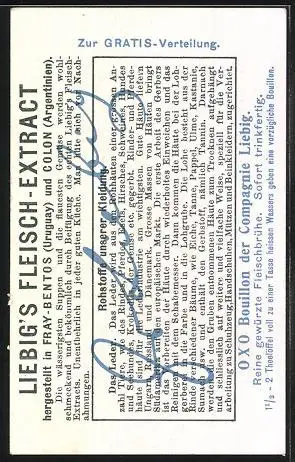 Zur GRATIS-Verteilung.
LIEBIG'S FLEISCH-EXTRACT
hergestellt in FRAY-BENTOS (Uruguay) und COLON (Argentinien).
Die wässerigsten Suppen und faden Gemüse werden wohl-
schmeckend und bekömmlich durch Beifügung des echten Liebig's Fleisch-
Extracts. Unentbehrlich in jeder guten Küche. Man hüte sich vor Nach-
ahmungen.
Rohstoffe unserer Kleidung.
Das Leder. Das Leder wird aus den Rohhäuten einer grossen An-
zahl Tiere, wie des Rindes, Pferdes, Bocks, Hirsches, Schweines, Hundes
und Seehunds, Krokodils etc. gegerbt. Rinder- und Pferde-
häute sind die wichtigsten. An Wildhäute liefern
Ungarn, Russland und Dänemark. Grosse Massen von Häuten bringt
Südamerika auf den europäischen Markt. Die erste Arbeit des Gerbers
ist das Vorbereiten der Häute durch wiederholtes Einweichen und das
Reinigen mit dem Schabemesser. Dann kommen die Häute bei der Loh-
gerberei in die Farbe und in die Lohgrube. Die Lohe besteht aus der
Rinde verschiedener Bäume, wie Eiche, Tanne, Pappel, Ulme, Kastanie,
Sumach usw. und enthält den Gerbstoff, nämlich Tannin. Darnach
werden die den Gruben entnommenen Häute zum Trocknen aufgehängt
und schliesslich auf weitere und vielfache Weise, speziell für die Ver-
arbeitung zu Schuhzeug, Handschuhen, Mützen und Beinkleidern, zugerichtet.
OXO Bouillon der Compagnie Liebig.
Reine gewürzte Fleischbrühe. Sofort trinkfertig.
1½ - 2 Theelöffel voll zu einer Tasse heissen Wassers geben eine vorzügliche Bouillon.